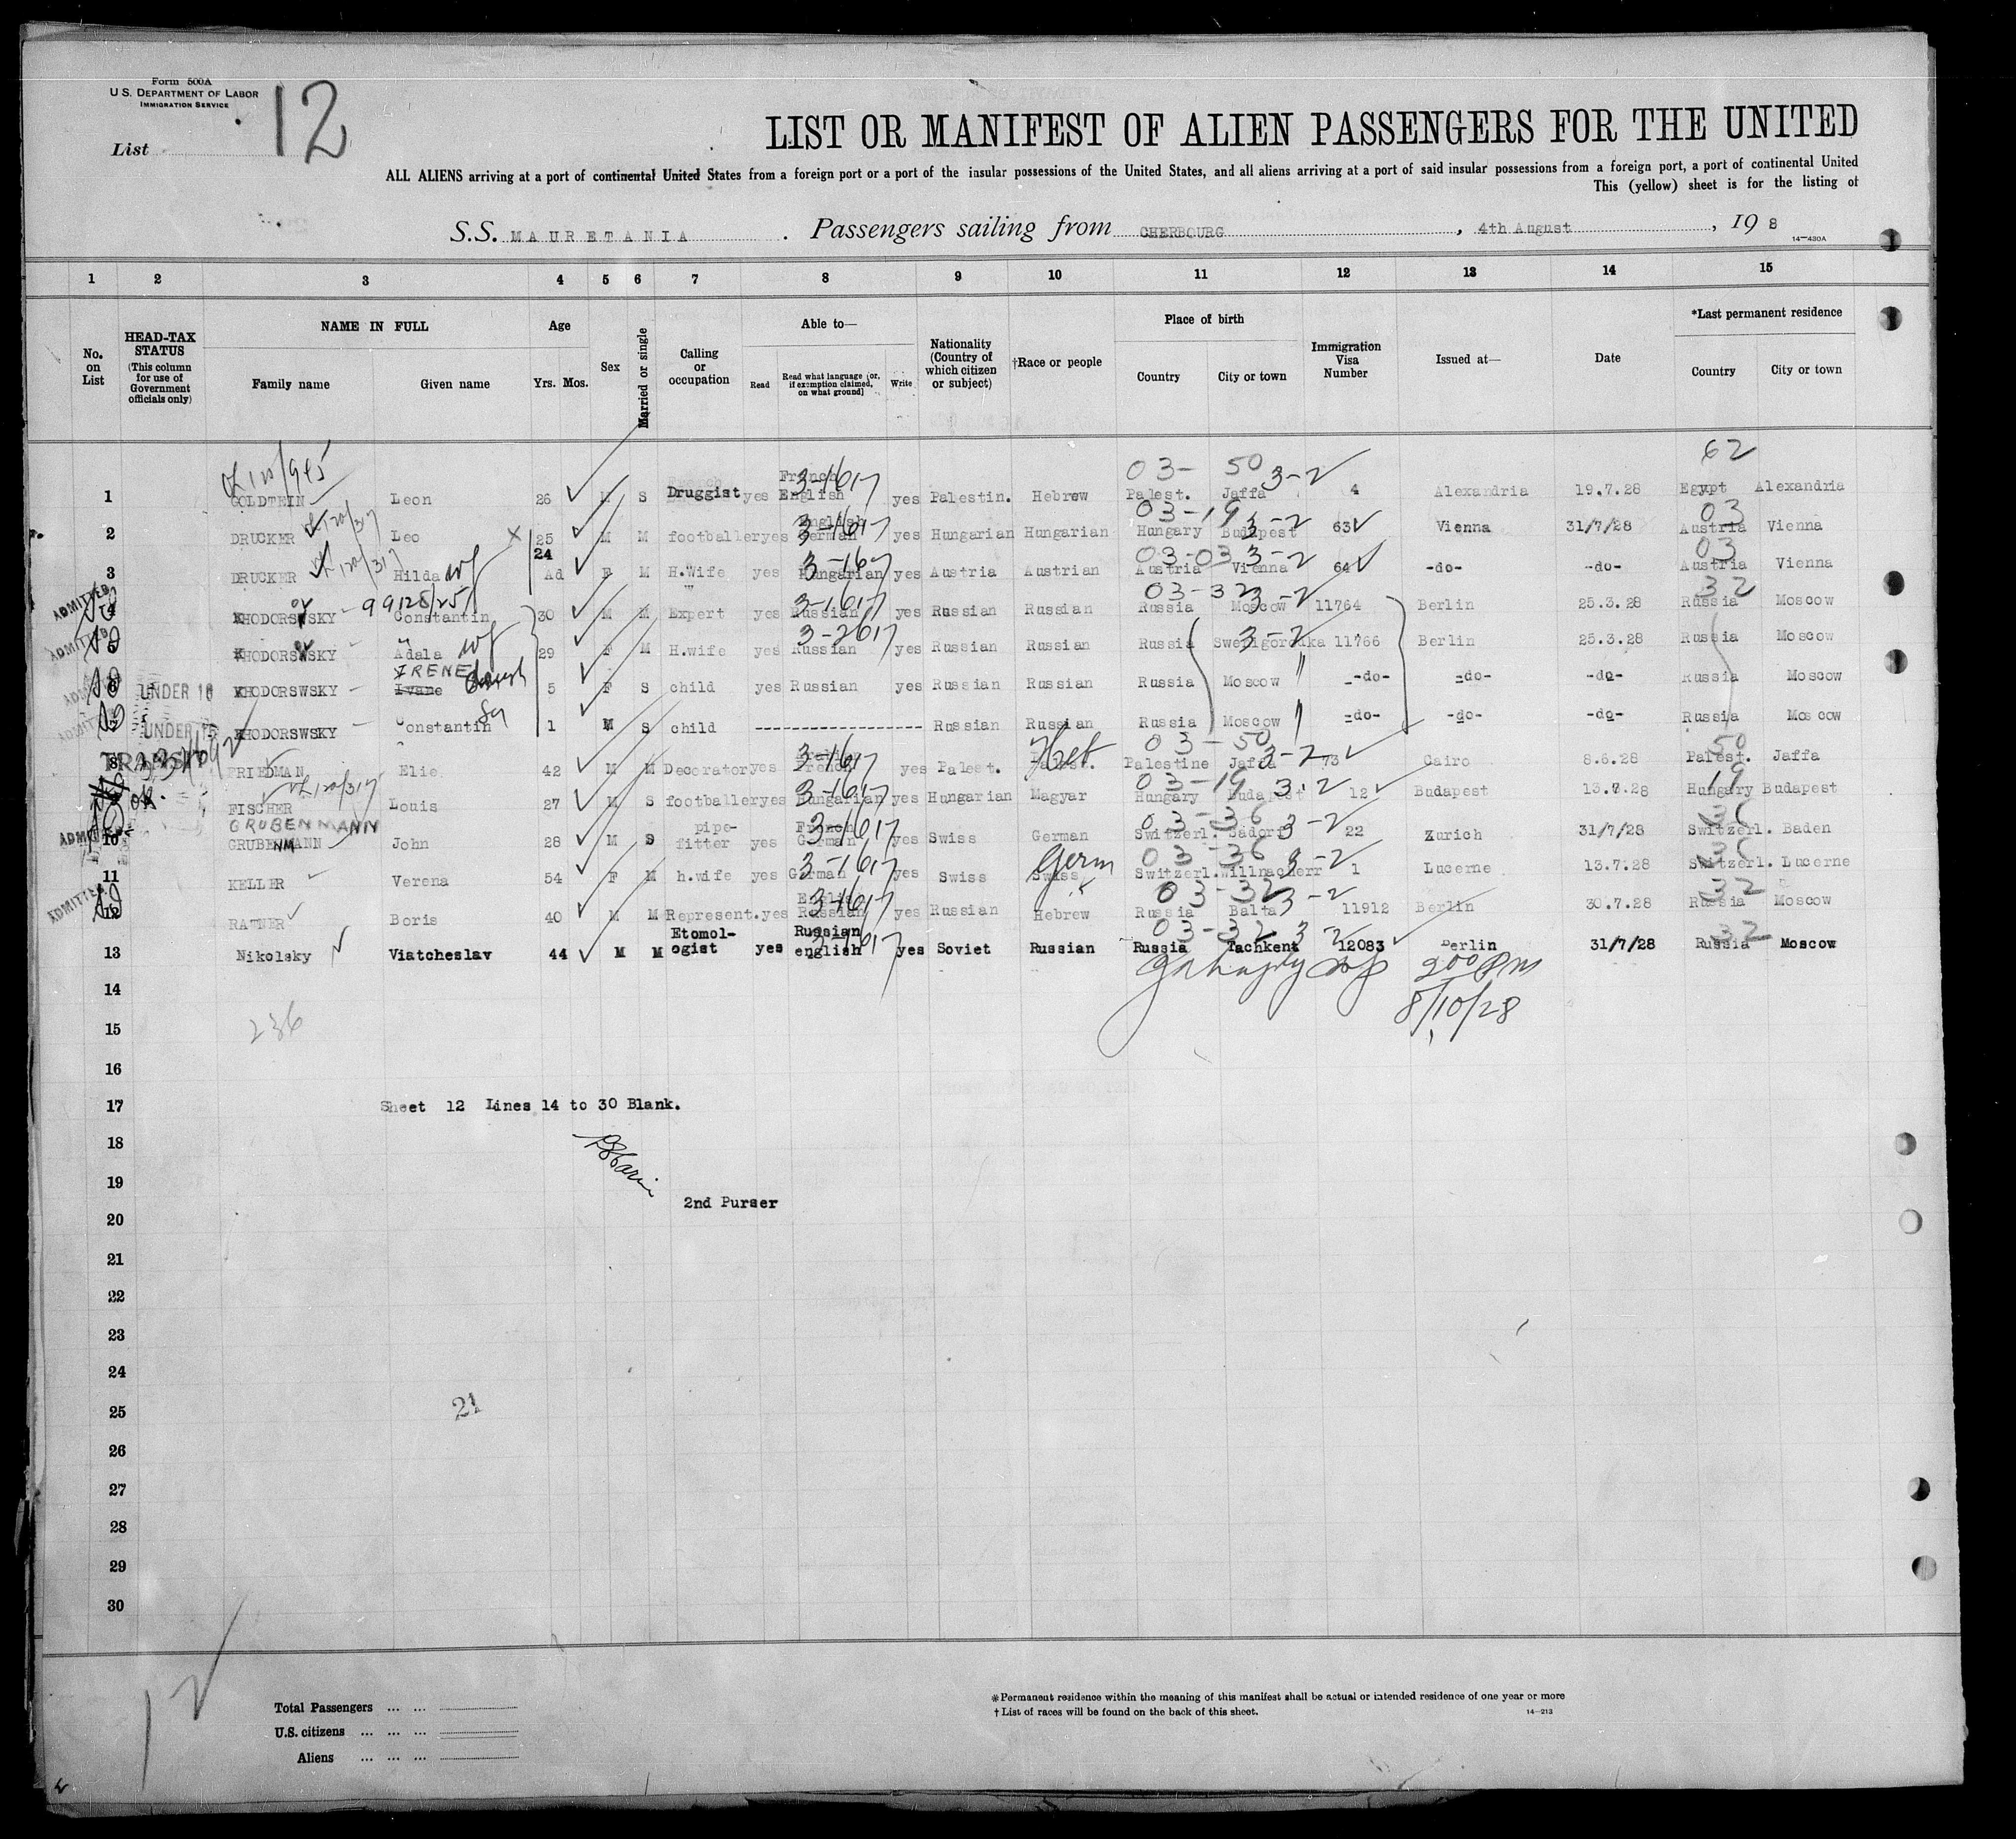 Form 500A
U.S. DEPARTMENT OF LABOR
IMMIGRATION SERVICE
List 12
LIST OR MANIFEST OF ALIEN PASSENGERS FOR THE UNITED
ALL ALIENS arriving at a port of continental United States from a foreign port or a port of the insular possessions of the United States, and all aliens arriving at a port of said insular possessions from a foreign port, a port of continental United
This (yellow) sheet is for the listing of
S.S. MAURETANIA . Passengers sailing from CHERBOURG , 4th August , 19 8
14—430A
1 2 3 4 5 6 7 8 9 10 11 12 13 14 15
No. on List
HEAD-TAX STATUS
(This column for use of Government officials only)
NAME IN FULL
Family name Given name
Age
Yrs. Mos.
Sex
Married or single
Calling or occupation
Able to—
Read Read what language [or, if exemption claimed, on what ground] Write
Nationality (Country of which citizen or subject)
†Race or people
Place of birth
Country City or town
Immigration Visa Number
Issued at—
Date
*Last permanent residence
Country City or town
62
03- 50 3-2
1 GOLDTEIN Leon 26 M S Druggist yes French English 3-1617 yes Palestin. Hebrew Palest. Jaffa 4 Alexandria 19.7.28 Egypt Alexandria
03-19 3-2 03
2 DRUCKER Leo 25 M M footballer yes English German 3-1617 yes Hungarian Hungarian Hungary Budapest 63 Vienna 31/7/28 Austria Vienna
03-03 3-2 03
3 DRUCKER Hilda wf 24 Ad F M H.Wife yes Hungarian yes Austria Austrian Austria Vienna 64 -do- -do- Austria Vienna
ADMITTED 99128/25 03-32 3-2 32
4 KHODORSWSKY Constantin 30 M M Expert yes Russian 3-1617 yes Russian Russian Russia Moscow 11764 Berlin 25.3.28 Russia Moscow
ADMITTED
5 KHODORSWSKY Adala wf 29 F M H.wife yes Russian 3-2617 yes Russian Russian Russia Swenigorodka 3-2 11766 Berlin 25.3.28 Russia Moscow
ADMITTED UNDER 16 IRENE
6 KHODORSWSKY Ivane daugh 5 F S child yes Russian yes Russian Russian Russia Moscow " -do- -do- -do- Russia Moscow
ADMITTED UNDER 16
7 KHODORSWSKY Constantin 1 M S child ---------------- Russian Russian Russia Moscow " -do- -do- -do- Russia Moscow
TRANSIT 03-50 3-2 50
8 FRIEDMAN Elie 42 M M Decorator yes French 3-1617 yes Palest. Palestine Jaffa 73 Cairo 8.6.28 Palest. Jaffa
ok. 03-19 3-2 19
FISCHER Louis 27 M S footballer yes Hungarian 3-1617 yes Hungarian Magyar Hungary Budapest 12 Budapest 13.7.28 Hungary Budapest
GRUBENMANN 03-36 3-2 36
ADMITTED
10 GRUBENMANN John 28 M S pipe-fitter yes French German 3-1617 yes Swiss German Switzerl. 22 Zurich 31/7/28 Switzerl. Baden
03-36 3-2 36
11 KELLER Verena 54 F M h.wife yes German 3-1617 yes Swiss Swiss Germ Switzerl. Willnacherr 1 Lucerne 13.7.28 Switzerl. Lucerne
ADMITTED 03-32 3-2 32
12 RATNER Boris 40 M M Represent. yes English Russian 3-1617 yes Russian Hebrew Russia Balta 11912 Berlin 30.7.28 Russia Moscow
03-32 3-2 32
13 Nikolsky Viatcheslav 44 M M Etomol-ogist yes Russian english 3-1617 yes Soviet Russian Russia Tachkent 12083 Berlin 31/7/28 Russia Moscow
200 PM
8/10/28
14
236
15
16
17 Sheet 12 Lines 14 to 30 Blank.
18
19
2nd Purser
20
21
22
23
24
21
25
26
27
28
29
30
12
Total Passengers ... ...
U.S. citizens ... ... ...
Aliens ... ... ...
*Permanent residence within the meaning of this manifest shall be actual or intended residence of one year or more
† List of races will be found on the back of this sheet.
14—213